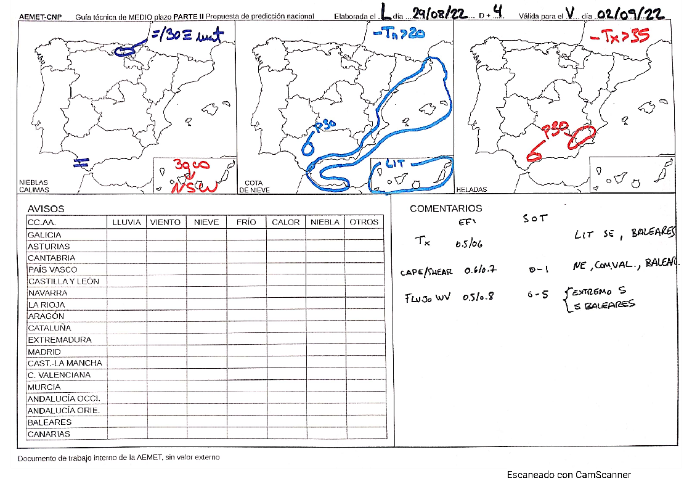 AEMET-CNP Guía técnica de MEDIO plazo PARTE II Propuesta de predicción nacional Elaborada el L día 29/08/22 D + 4 Válida para el V día 02/09/22
=/30≡ mat
-Tn>20
-Tx>35
P30
P30
=
LIT
NIEBLAS
CALIMAS
COTA
DE NIEVE
HELADAS
AVISOS
CC.AA. LLUVIA VIENTO NIEVE FRÍO CALOR NIEBLA OTROS
GALICIA
ASTURIAS
CANTABRIA
PAÍS VASCO
CASTILLA Y LEÓN
NAVARRA
LA RIOJA
ARAGÓN
CATALUÑA
EXTREMADURA
MADRID
CAST.-LA MANCHA
C. VALENCIANA
MURCIA
ANDALUCÍA OCCI.
ANDALUCÍA ORIE.
BALEARES
CANARIAS
COMENTARIOS
EFI SOT
Tx 0.5/06 LIT SE, BALEARES
CAPE/SHEAR 0.6/0.7 0-1 NE, COM.VAL., BALEAR
FLUJO WV 0.5/0.8 0-5 { EXTREMO S
S BALEARES
Documento de trabajo interno de la AEMET, sin valor externo
Escaneado con CamScanner